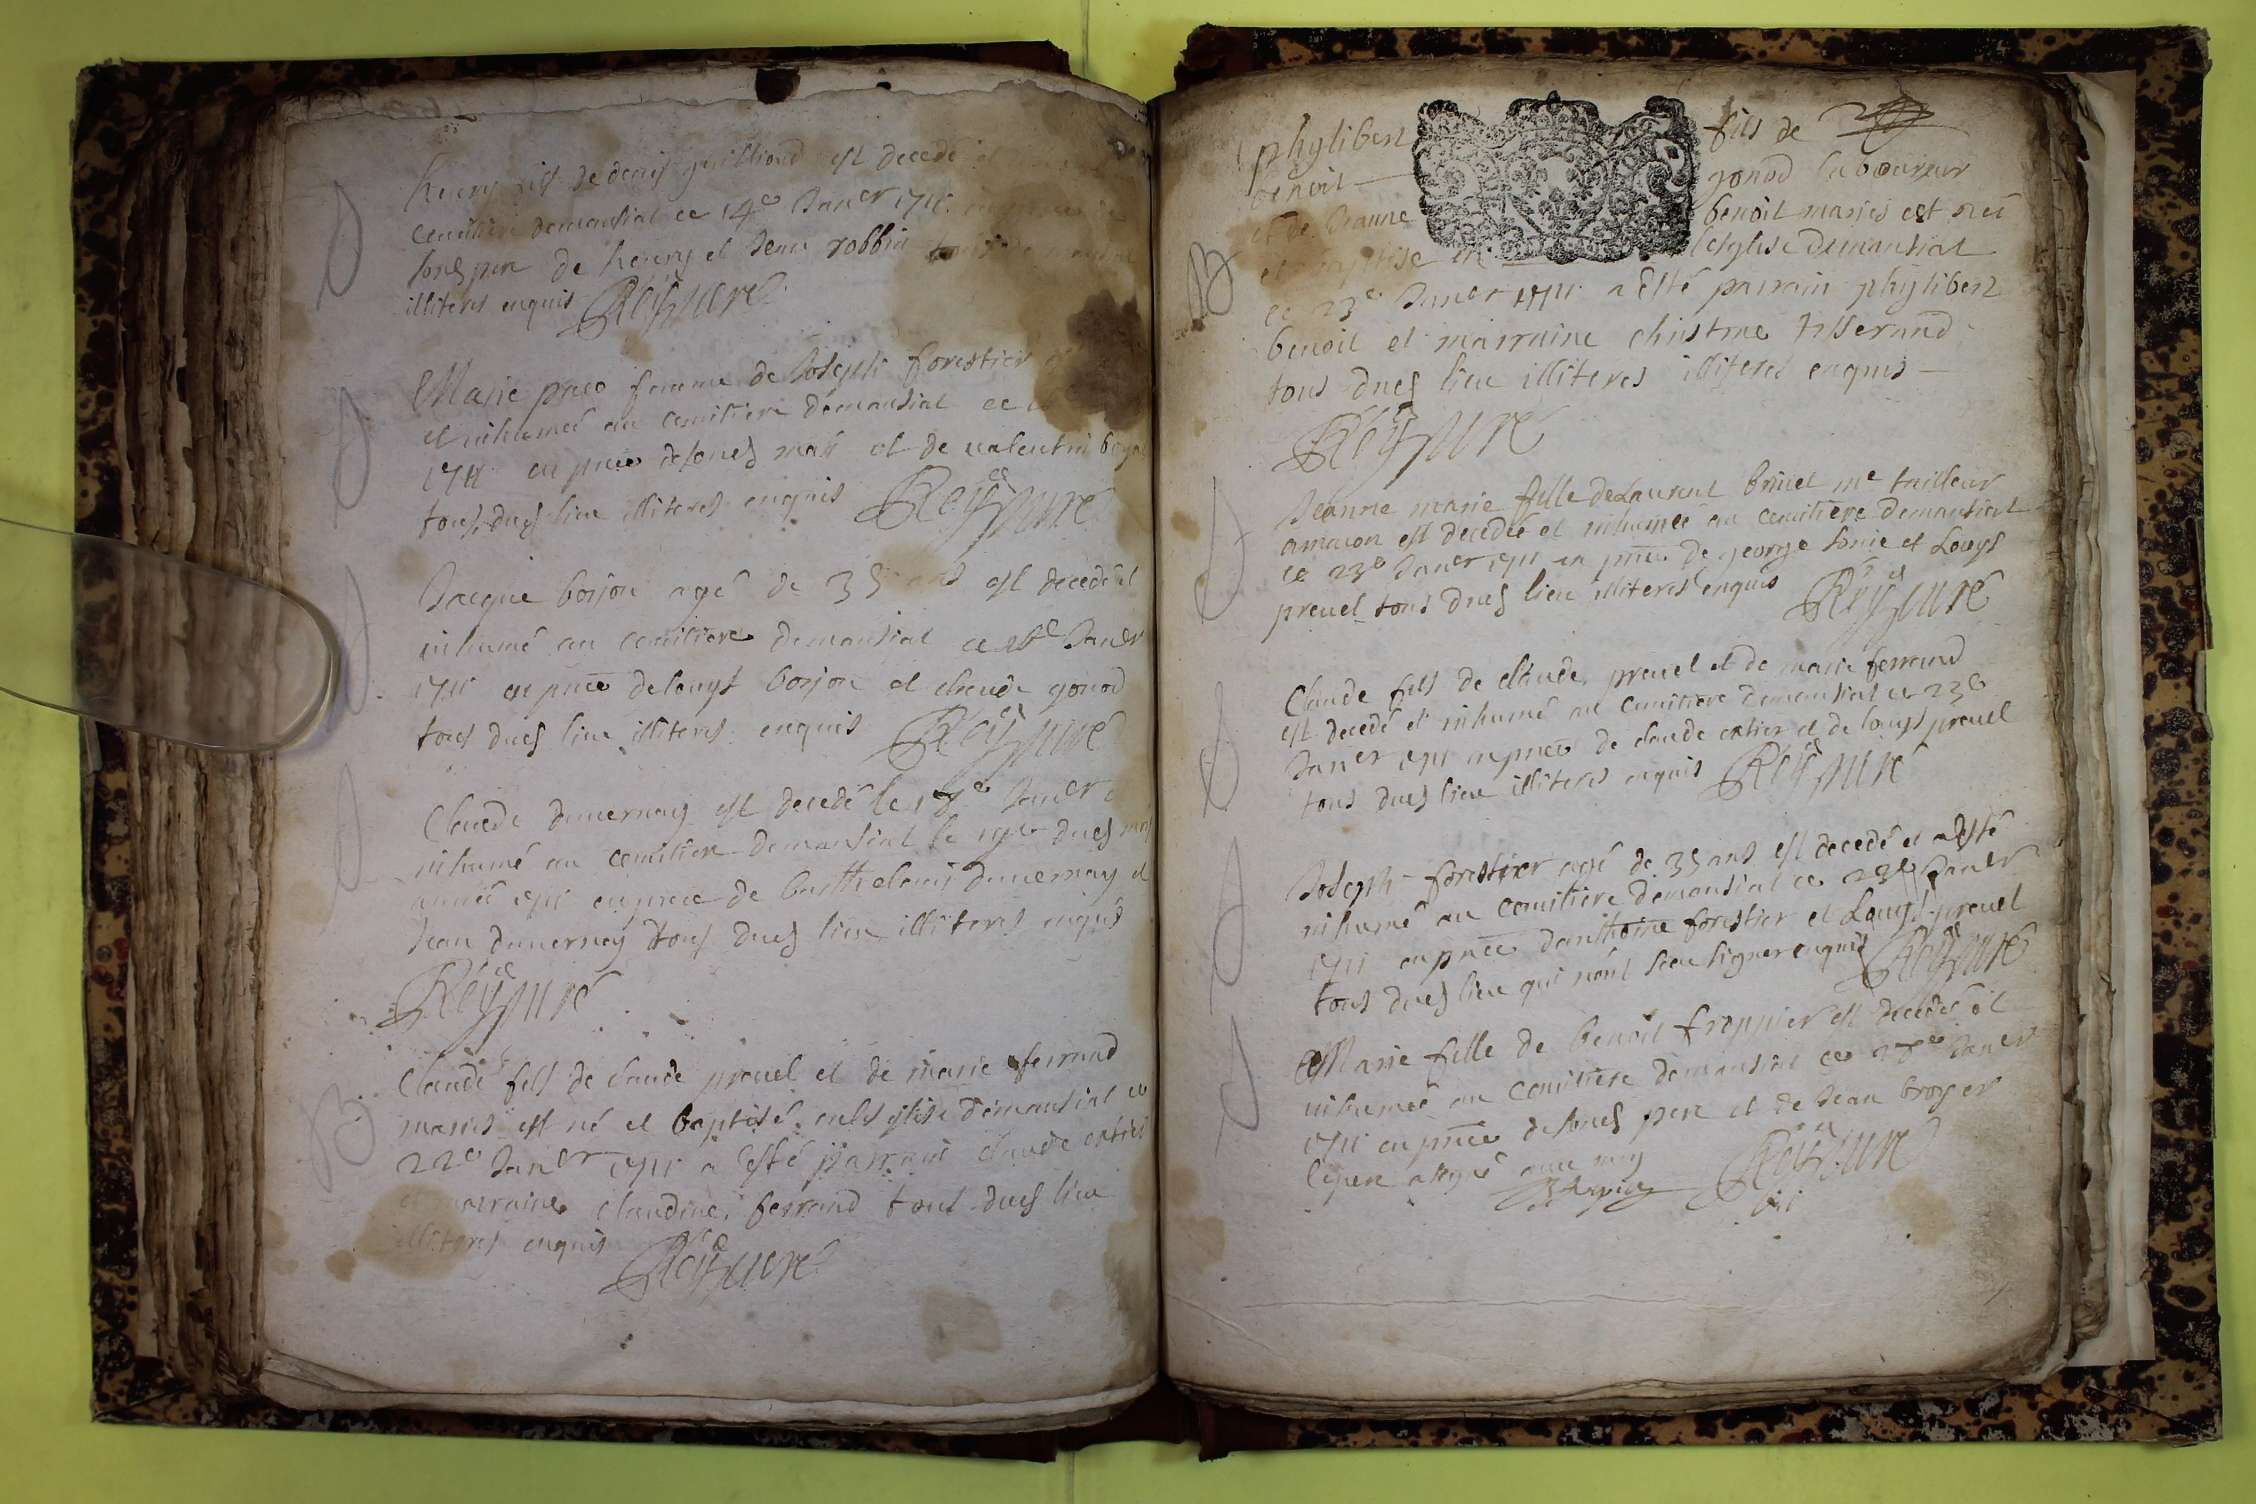 D
henry fils de denis guilliond est decedé et
cemitiere demansiat ce 14e Janer 1711
sond pere de henry et Jean robbin
illiteres enquis Reÿ curé
D
Marie pnce femme de Joseph forestier
et inhumeé au cemitiere demansiat ce
1711 en pnce desond mary et de valentin
tous dud lieu illiteres enquis Reÿ curé
D
Jacque boijon agé de 35 ans est decedé et
inhumé au cemitiere demansiat ce Janer
1711 en pnce de louys boijon et claude gonod
tous dud lieu illiteres enquis Reÿ curé
D
Claude duvernay est decedé le Janer
inhumé au cemitiere demansiat le dud mois
année 1711 en pnce de barthelemy duvernay et
Jean duvernay tous dud lieu illiteres enquis
Reÿ curé
B
Claude fils de claude prevel et de marie ferrand
maries est né et baptisé en leglise demansiat ce
22e Janer 1711 a esté parrain claude
et marraine claudine ferrand tous dud lieu
illiteres enquis Reÿ curé
B
phylibert fils de
benoit gonod laboureur
et de Jeanne benoit maries est né
et baptise en leglise demansiat
ce 23e Janer 1711 a esté parrain phylibert
benoit et marraine christine tisserand
tous dud lieu illiteres illiteres enquis
Reÿ curé
D
Jeanne marie fille de Laurent brivet me tailleur
amacon est decedée et inhumeé au cemitiere demansiat
ce 23e Janer 1711 en pnce de george et Louys
prevel tous dud lieu illiteres enquis Reÿ curé
D
Claude fils de claude prevel et de marie ferrand
est decedé et inhumé au cemitiere demansiat ce 23e
Janer 1711 en pnce de claude et de louys prevel
tous dud lieu illiteres enquis Reÿ curé
D
Joseph forestier agé de 35 ans est decedé et a esté
inhumé au cemitiere demansiat ce Janer
1711 en pnce danthoine forestier et Louys prevel
tous dud lieu qui nont sceu signer enquis Reÿ curé
D
Marie fille de benoit frappier est decedeé et
inhumeé au cemitiere demansiat ce Janer
1711 en pnce desond pere et de Jean broyer
le pere a signé avec moy Reÿ curé